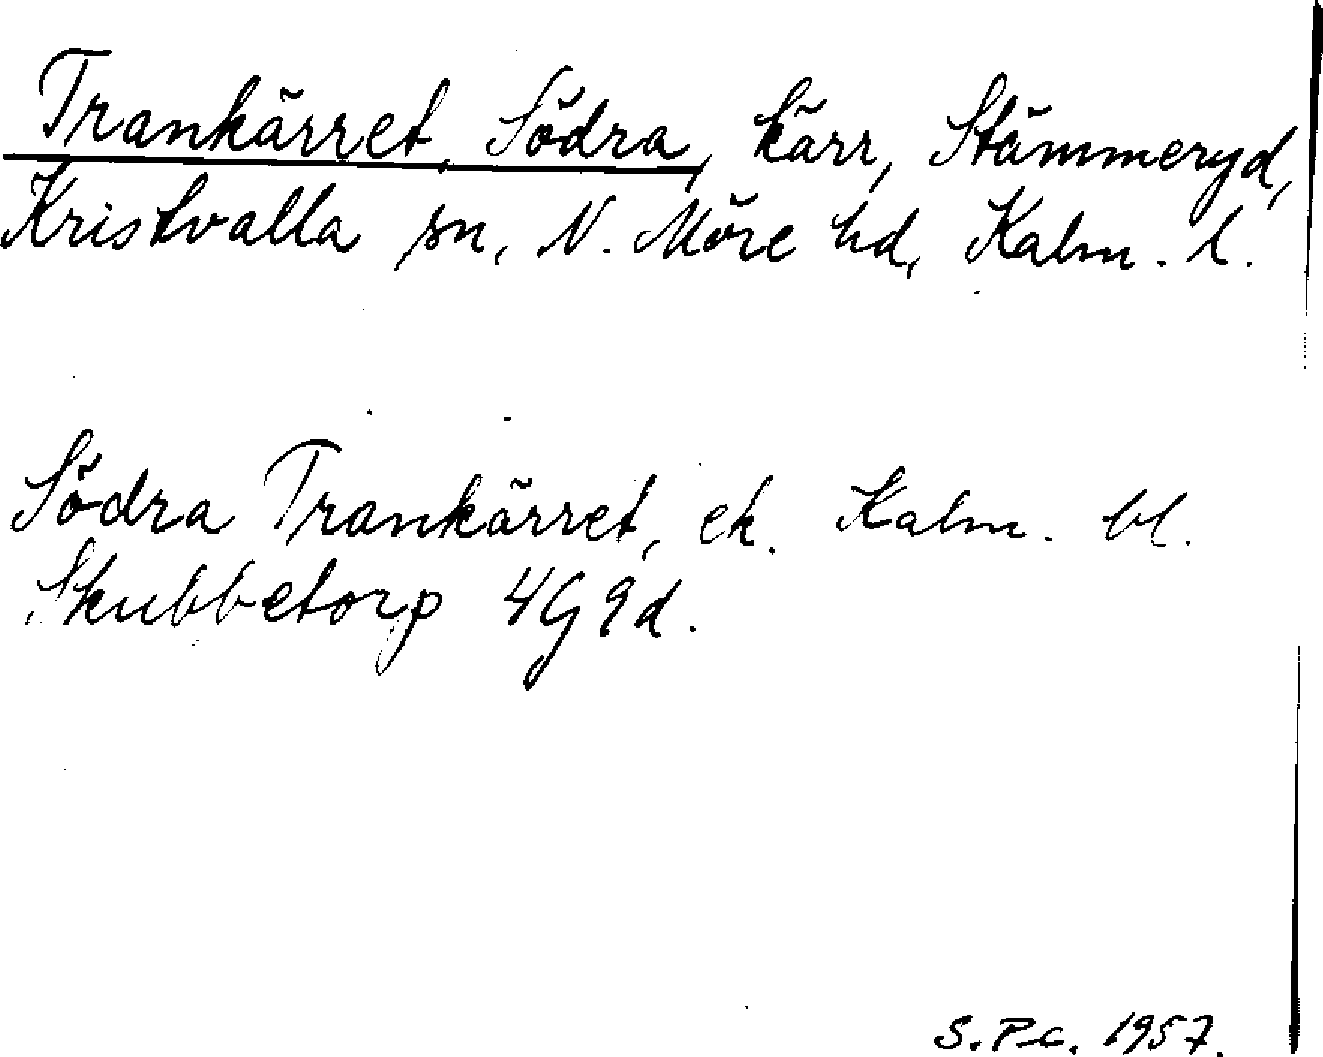 Trankärret, Södra, kärr, Stämmeryd,
Kristvalla sn, N. Möre hd, Kalm. l.
Södra Trankärret, ek. Kalm. bl.
Skubbetorp 4G9d.
S.P.C. 1957.